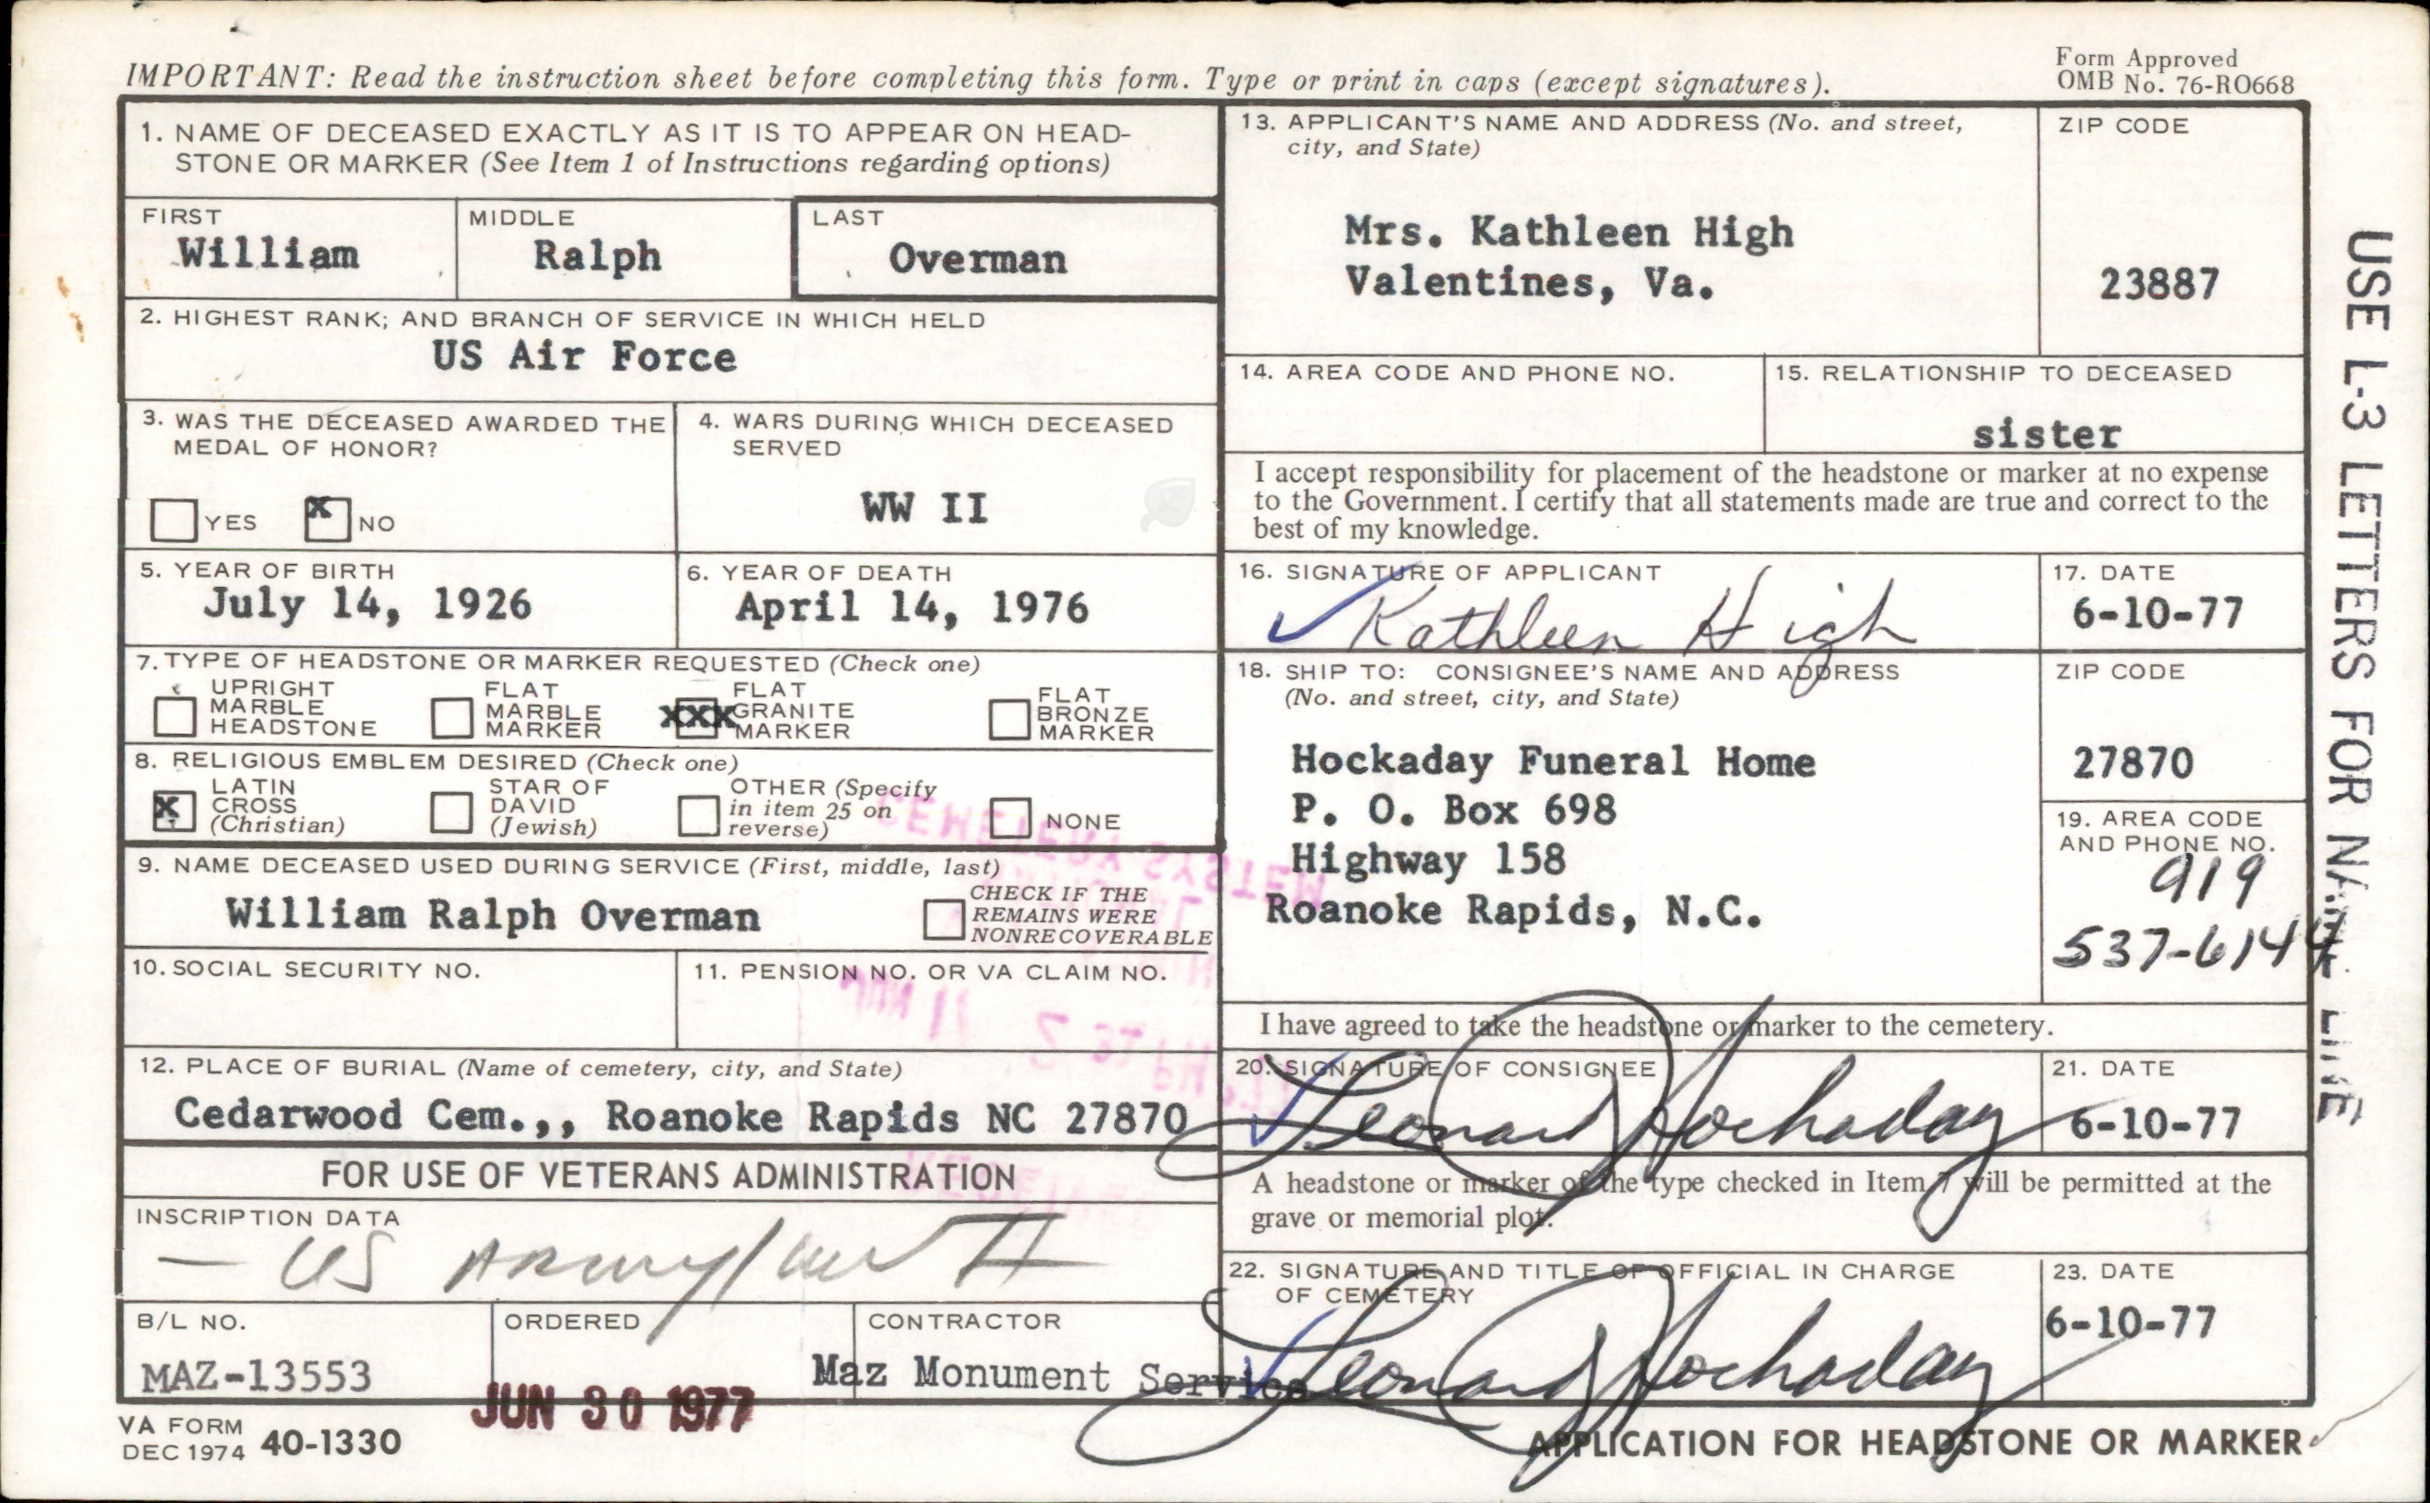 IMPORTANT: Read the instruction sheet before completing this form. Type or print in caps (except signatures).
Form Approved
OMB No. 76-RO668
1. NAME OF DECEASED EXACTLY AS IT IS TO APPEAR ON HEAD-
STONE OR MARKER (See Item 1 of Instructions regarding options)
FIRST
William
MIDDLE
Ralph
LAST
Overman
2. HIGHEST RANK; AND BRANCH OF SERVICE IN WHICH HELD
US Air Force
3. WAS THE DECEASED AWARDED THE
MEDAL OF HONOR?
YES
X NO
4. WARS DURING WHICH DECEASED
SERVED
WW II
5. YEAR OF BIRTH
July 14, 1926
6. YEAR OF DEATH
April 14, 1976
7. TYPE OF HEADSTONE OR MARKER REQUESTED (Check one)
UPRIGHT
MARBLE
HEADSTONE
FLAT
MARBLE
MARKER
XXX
FLAT
GRANITE
MARKER
FLAT
BRONZE
MARKER
8. RELIGIOUS EMBLEM DESIRED (Check one)
X
LATIN
CROSS
(Christian)
STAR OF
DAVID
(Jewish)
OTHER (Specify
in item 25 on
reverse)
NONE
9. NAME DECEASED USED DURING SERVICE (First, middle, last)
William Ralph Overman
CHECK IF THE
REMAINS WERE
NONRECOVERABLE
10. SOCIAL SECURITY NO.
11. PENSION NO. OR VA CLAIM NO.
12. PLACE OF BURIAL (Name of cemetery, city, and State)
Cedarwood Cem.,, Roanoke Rapids NC 27870
FOR USE OF VETERANS ADMINISTRATION
INSCRIPTION DATA
— US ARMY / WW II
B/L NO.
MAZ-13553
ORDERED
JUN 30 1977
CONTRACTOR
Maz Monument Service
VA FORM
DEC 1974 40-1330
13. APPLICANT'S NAME AND ADDRESS (No. and street,
city, and State)
Mrs. Kathleen High
Valentines, Va.
ZIP CODE
23887
14. AREA CODE AND PHONE NO.
15. RELATIONSHIP TO DECEASED
sister
I accept responsibility for placement of the headstone or marker at no expense
to the Government. I certify that all statements made are true and correct to the
best of my knowledge.
16. SIGNATURE OF APPLICANT
Kathleen High
17. DATE
6-10-77
18. SHIP TO: CONSIGNEE'S NAME AND ADDRESS
(No. and street, city, and State)
Hockaday Funeral Home
P. O. Box 698
Highway 158
Roanoke Rapids, N.C.
ZIP CODE
27870
19. AREA CODE
AND PHONE NO.
919
537-6144
I have agreed to take the headstone or marker to the cemetery.
20. SIGNATURE OF CONSIGNEE
Leonard Hockaday
21. DATE
6-10-77
A headstone or marker of the type checked in Item 7 will be permitted at the
grave or memorial plot.
22. SIGNATURE AND TITLE OF OFFICIAL IN CHARGE
OF CEMETERY
Leonard Hockaday
23. DATE
6-10-77
APPLICATION FOR HEADSTONE OR MARKER
USE L-3 LETTERS FOR NAME LINE
CEMETERY SYSTEM
RECEIVED